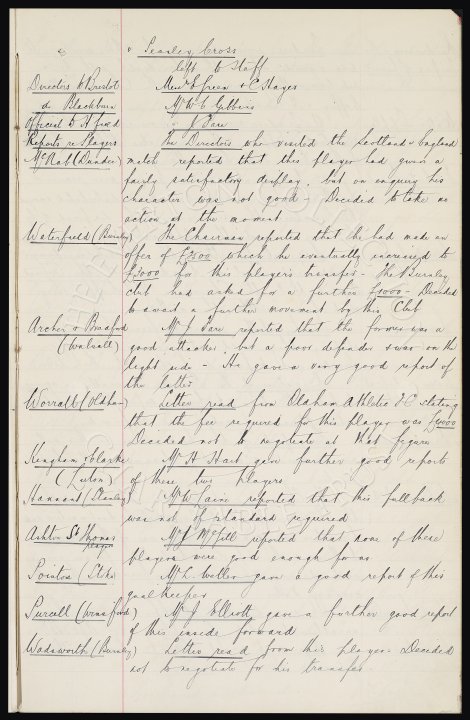 " Stanley Cross
left to Staff
Directors to Bristol Messrs Green & C Hayes
do Blackburn Mr W C Gibbins
Official to H'field " J Tare
Reports re Players The Directors who visited the Scotland v England
McNab (Dundee) match reported that this player had given a
fairly satisfactory display, but on enquiry his
character was not good - Decided to take no
action at the moment
Waterfield (Burnley) The Chairman reported that he had made an
offer of which he eventually increased to
for this player's transfer - The Burnley
club had asked for a further £1000 - Decided
to await a further movement by this Club
Archer & Bradford Mr J Tare reported that the former was a
(Walsall) good attacker, but a poor defender & was on the
light side - He gave a very good report of
the latter
Worrall (Oldham) Letter read from Oldham Athletic F.C stating
that the fee required for this player was
Decided not to negotiate at that figure
Kingham & Clarke Mr H Hart gave further good reports
(Luton) of these two players
Hannant (Stanley) Mr W reported that this fullback
was not of standard required
Ashton St Thomas Mr J McGill reported that none of these
players were good enough for us
Pointon (Stoke) Mr L Weller gave a good report of this
goalkeeper
Purcell Mr J Elliott gave a further good report
of this inside forward
Wadsworth (Burnley) Letter read from this player - Decided
not to negotiate for his transfer -